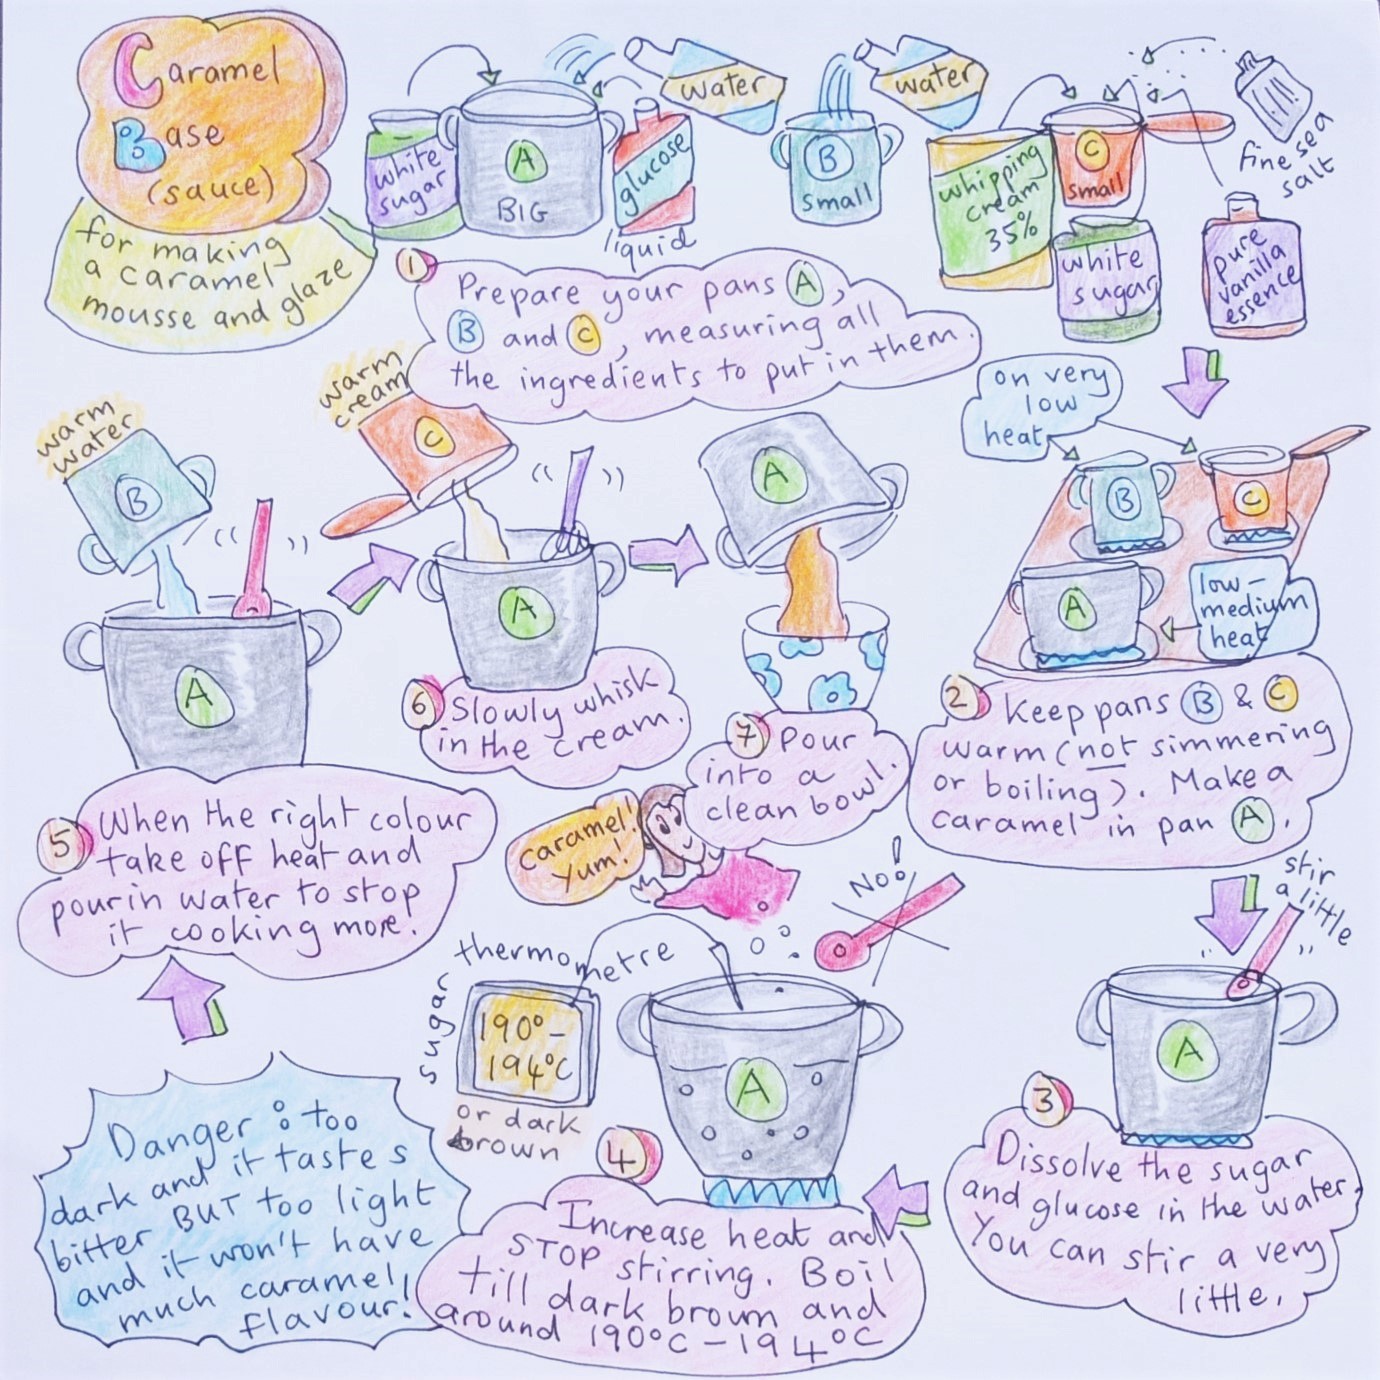 Caramel
Base
(sauce)
for making
a caramel
mousse and glaze
white
sugar
A
BIG
water
glucose
liquid
water
B
small
whipping
cream
35%
C
small
white
sugar
fine sea
salt
pure
vanilla
essence
1 Prepare your pans A,
B and C, measuring all
the ingredients to put in them.
on very
low
heat
B
C
A
low-
medium
heat
2 Keep pans B & C
warm (not simmering
or boiling). Make a
caramel in pan A.
stir
a little
A
3 Dissolve the sugar
and glucose in the water.
You can stir a very
little.
No!
sugar thermometre
190°-
194°C
or dark
brown
A
4 Increase heat and
STOP stirring. Boil
till dark brown and
around 190°C - 194°C
Danger: too
dark and it tastes
bitter BUT too light
and it won't have
much caramel
flavour!
warm
water
B
A
5 When the right colour
take off heat and
pour in water to stop
it cooking more.
warm
cream
C
A
6 Slowly whisk
in the cream.
A
7 Pour
into a
clean bowl.
Caramel!
Yum!